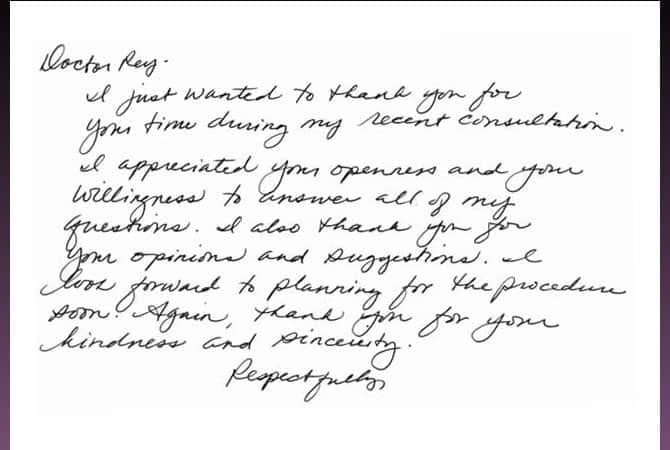 Doctor Rey.
I just wanted to thank you for
your time during my recent consultation.
I appreciated your openness and your
willingness to answer all of my
questions. I also thank you for
your opinions and suggestions. I
look forward to planning for the procedure
soon. Again, thank you for your
kindness and sincerity.
Respectfully,